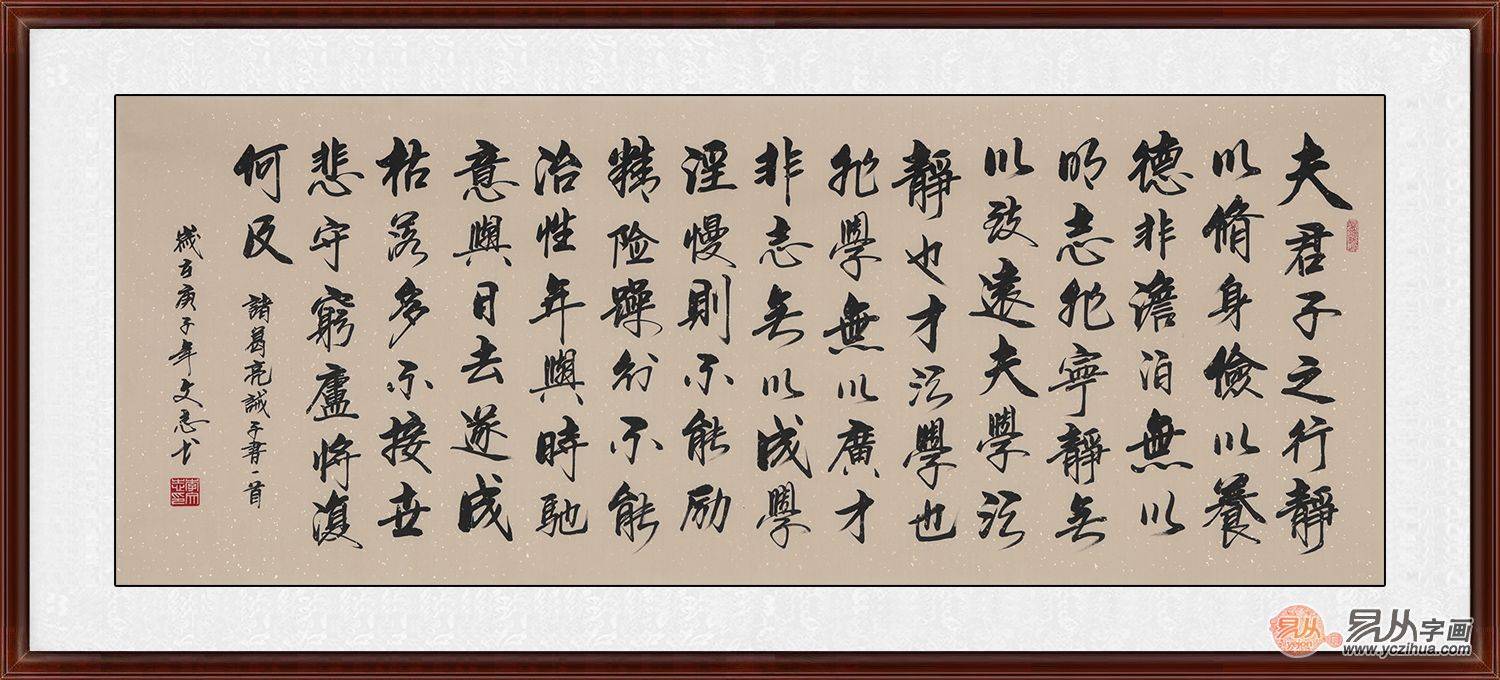 夫君子之行靜
以脩身儉以養
德非澹泊無以
明志非寧靜无
以致遠夫學须
靜也才须學也
非學無以廣才
非志无以成學
淫慢則不能励
精险躁则不能
治性年與時馳
意與日去遂成
枯落多不接世
悲守窮廬將復
何及
諸葛亮誡子書一首
歲在庚子年文志书
易从
易从字画
www.yczihua.com